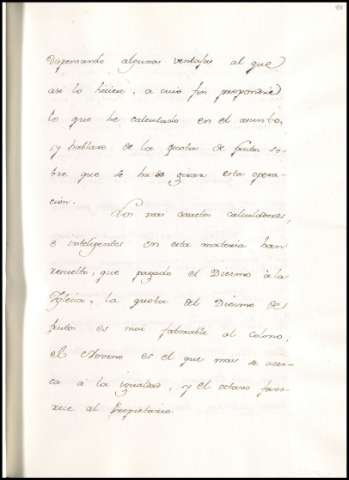 dispensando algunas ventajas al que
asi lo hiciere, a cuio fin propondré
lo que he calculado en el asunto,
y hablaré de la quota de frutos so-
bre que se ha de girar esta opera-
ción.
Los mas exactos calculadores,
e inteligentes en esta materia han
resuelto, que pagado el Diezmo à la
Yglesia, la quota del Diezmo de
fruto es mui faborable al colono,
el Noveno es el que mas se acer-
ca à la igualdad, y el octavo favo-
rece al Propietario.